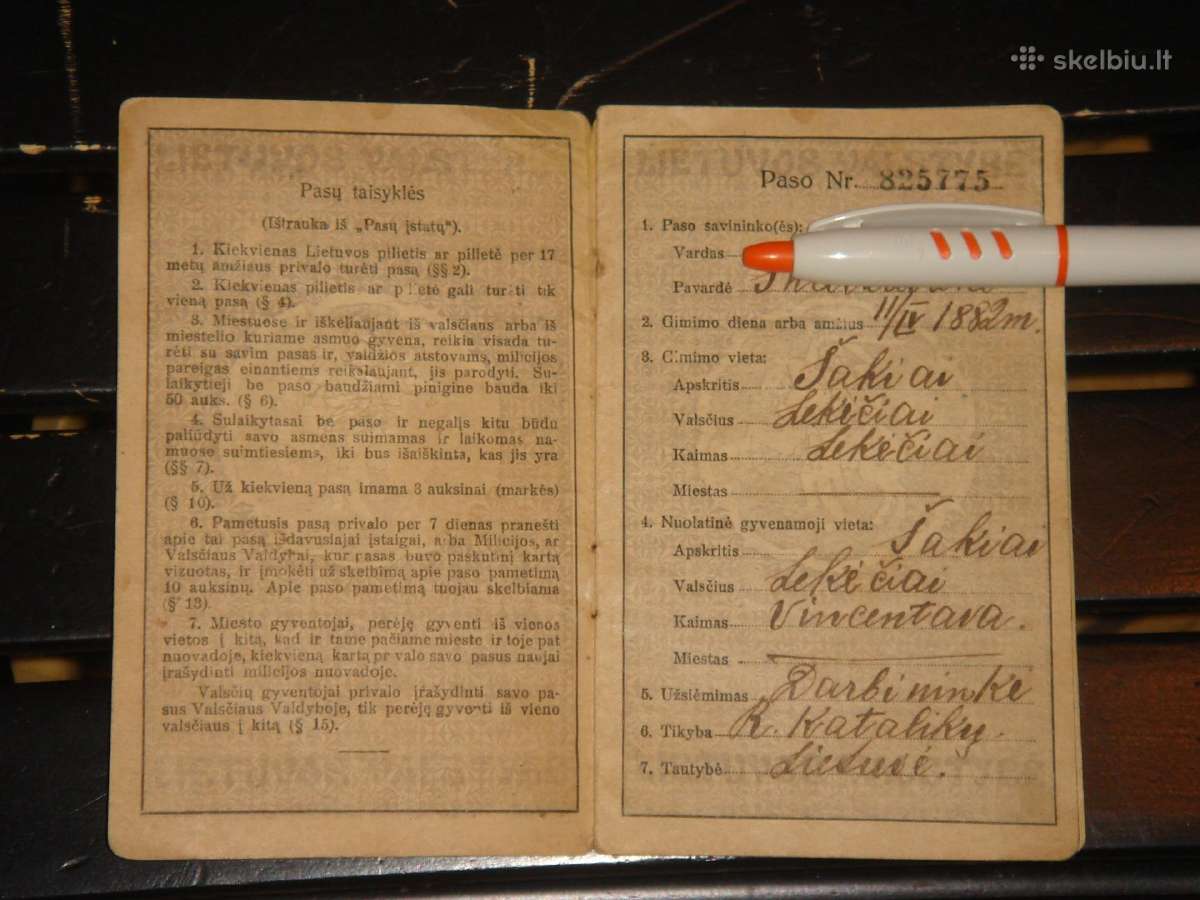 skelbiu.lt
Pasų taisyklės
(Ištrauka iš „Pasų įstatų").
1. Kiekvienas Lietuvos pilietis ar pilietė per 17
metų amžiaus privalo turėti pasą (§§ 2).
2. Kiekvienas pilietis ar pilietė gali turėti tik
vieną pasą (§ 4).
3. Miestuose ir iškeliaujant iš valsčiaus arba iš
miestelio kuriame asmuo gyvena, reikia visada tu-
rėti su savim pasas ir, valdžios atstovams, milicijos
pareigas einantiems reikalaujant, jis parodyti. Su-
laikytieji be paso baudžiami pinigine bauda iki
50 auks. (§ 6).
4. Sulaikytasai be paso ir negalįs kitu būdu
paliudyti savo asmens suimamas ir laikomas na-
muose suimtiesiems, iki bus išaiškinta, kas jis yra
(§§ 7).
5. Už kiekvieną pasą imama 3 auksinai (markės)
(§ 10).
6. Pametusis pasą privalo per 7 dienas pranešti
apie tai pasą išdavusiajai įstaigai, arba Milicijos, ar
Valsčiaus Valdybai, kur pasas buvo paskutinį kartą
vizuotas, ir įmokėti už skelbimą apie paso pametimą
10 auksinų. Apie paso pametimą tuojau skelbiama
(§ 13).
7. Miesto gyventojai, perėję gyventi iš vienos
vietos į kitą, kad ir tame pačiame mieste ir toje pat
nuovadoje, kiekvieną kartą privalo savo pasus naujai
įrašydinti milicijos nuovadoje.
Valsčių gyventojai privalo įrašydinti savo pa-
sus Valsčiaus Valdyboje, tik perėję gyventi iš vieno
valsčiaus į kitą (§ 15).
Paso Nr. 825775
1. Paso savininko(ės):
Vardas
Pavardė
2. Gimimo diena arba amžius 11/IV 1882 m.
3. Gimimo vieta:
Apskritis Šakiai
Valsčius Lekėčiai
Kaimas Lekėčiai
Miestas
4. Nuolatinė gyvenamoji vieta:
Apskritis Šakiai
Valsčius Lekėčiai
Kaimas Vincentava.
Miestas
5. Užsiėmimas Darbininkė
6. Tikyba R. Katalikų.
7. Tautybė Lietuvė.